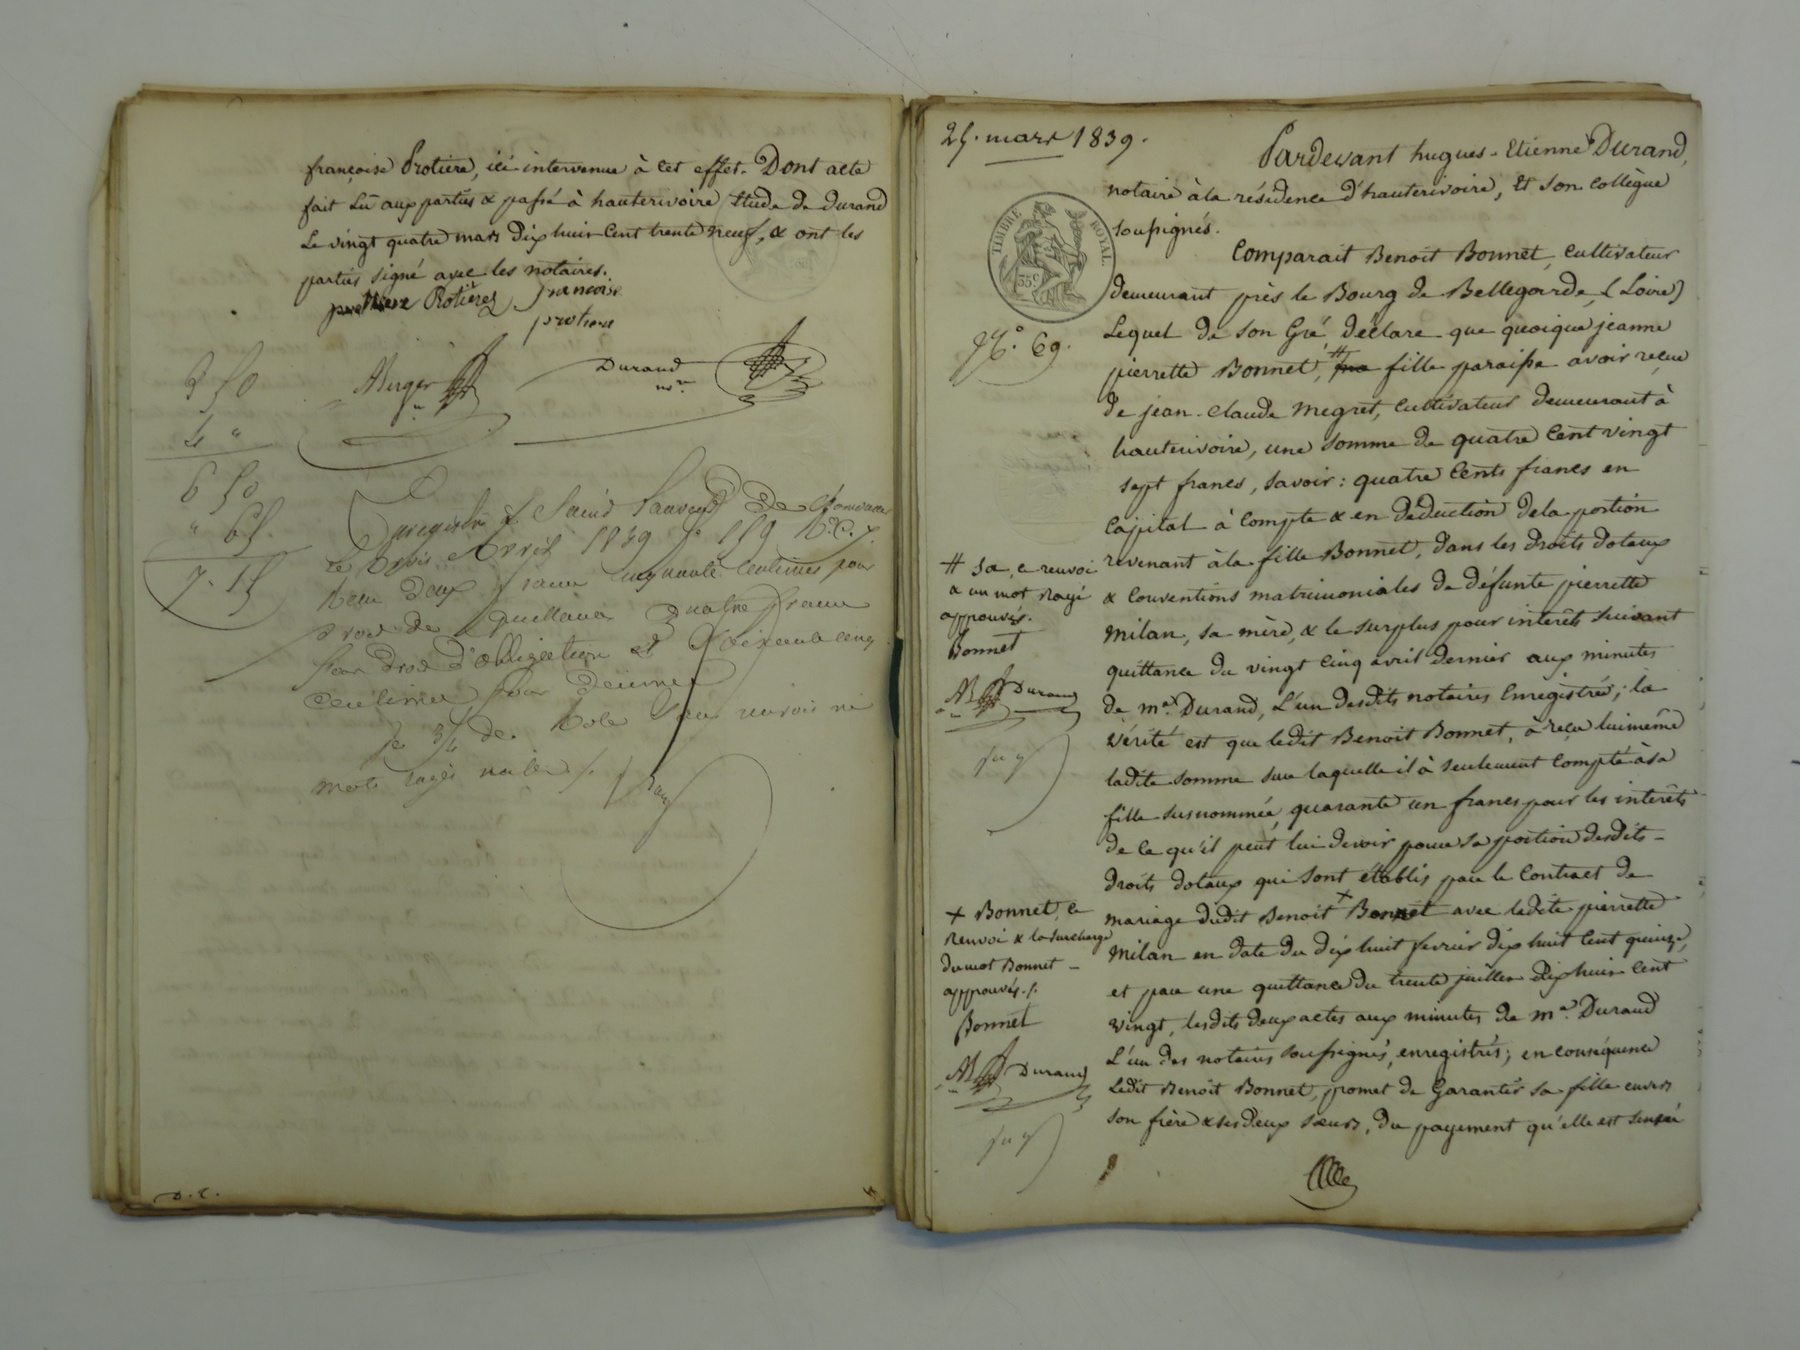 françoise Protiere, ici intervenue à cet effet. Dont acte
fait Lu aux parties & passé à hauterivoire Etude de Durand
Le vingt quatre mars Dix huit Cent trente neuf, & ont les
parties signé avec les notaires.
Rotierez françoise
protiere
Durand
nre
2 50
4 "
6 50
" 65.
7. 15
Enregistré à Saint Laurent De Chamousset
Le trois Avril 1839 fo 119 Vo. C. 7.
Reçu Deux francs Cinquante Centimes pour
Droit de Quittance Quatre francs
pour Droit d'obligation et Soixante cinq
Centimes pour Décime
Le 3/4 de Role sans renvois ni
mots rayés nuls ./.
D. C.
25. mars 1839.
Pardevant hugues-Etienne Durand,
notaire à la résidence d'hauterivoire, Et son Collègue
soussignés.
TIMBRE ROYAL.
35c
Comparait Benoit Bonnet, Cultivateur
demeurant près le Bourg de Bellegarde, (Loire)
No. 69.
Lequel de son Gré, déclare que quoique jeanne
pierrette Bonnet, # fille paraisse avoir reçue
de jean-Claude Megret, Cultivateur demeurant à
hauterivoire, une somme de quatre Cent vingt
sept francs, savoir: quatre Cents francs en
Capital à Compte & en déduction de la portion
revenant à la fille Bonnet, dans les droits dotaux
& Conventions matrimoniales de défunte pierrette
Milan, sa mère, & le surplus pour intérêts suivant
quittance du vingt Cinq avril dernier aux minutes
de me. Durand, L'un desdits notaires Enregistrée; la
vérité est que ledit Benoit Bonnet, à reçu lui même
ladite somme sur laquelle il à seulement Compté à sa
fille susnommée, quarante un francs pour les intérêts
de Ce qu'il peut lui devoir pour sa portion desdits-
droits dotaux qui sont établis par le Contract de
mariage dudit Benoit + Bonnet avec ladite pierrette
Milan en date du dix huit fevrier dix huit Cent quinze,
et par une quittance du trente juillet dix huit Cent
vingt, lesdits deux actes aux minutes de me. Durand
L'un des notaires soussignés, enregistrés; en conséquence
Ledit Benoit Bonnet, promet de Garantir sa fille envers
son frère & ses deux sœurs, du payement qu'elle est sensée
# sa, ce renvoi
& un mot rayé
approuvés.
Bonnet
Durand
+ Bonnet, ce
renvoi & la surcharge
du mot Bonnet -
approuvés./.
Bonnet
Durand